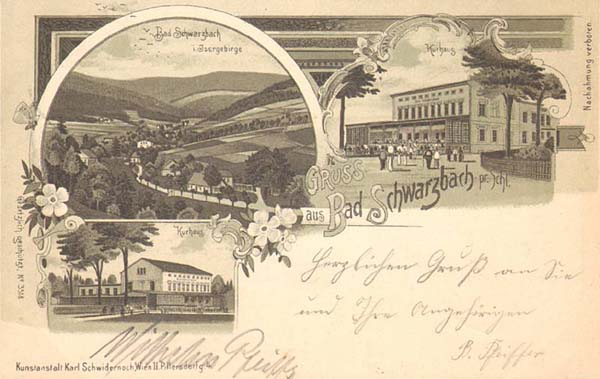 Bad Schwarzbach
i. Isergebirge
Kurhaus
Nachahmung verboten.
GRUSS
aus Bad Schwarzbach pr. Ichl.
Kurhaus
Gesetzlich geschützt. Nº 3508
Herzlichen Gruß an Sie
und Ihre Angehörigen
P. Pfeiffer
Wilhelm
Kunstanstalt Karl Schwidernoch, Wien II. Pillersdorfg.